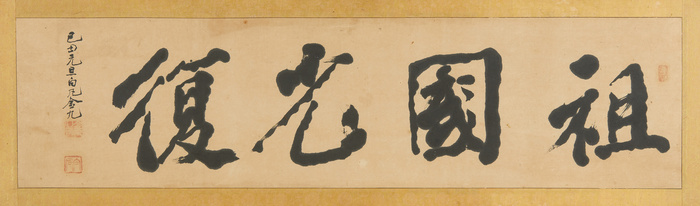 祖國光復
己丑元旦白凡金九